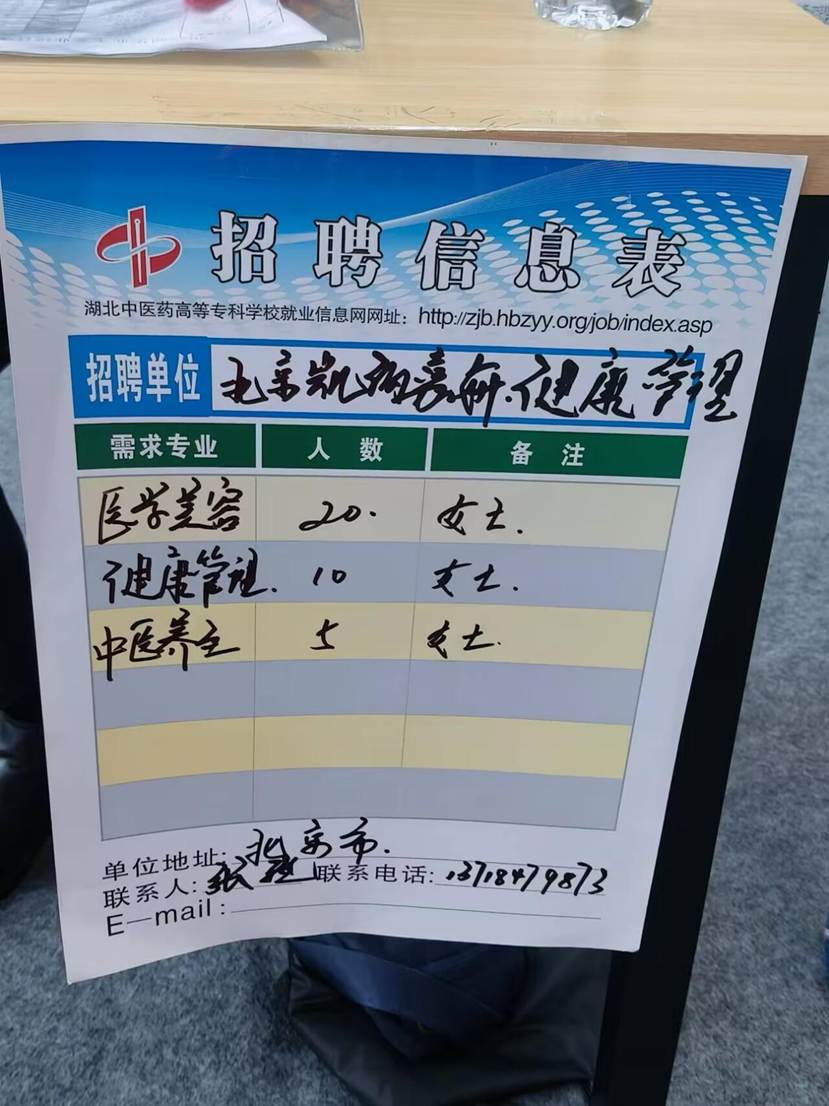 招聘信息表
湖北中医药高等专科学校就业信息网网址：http://zjb.hbzyy.org/job/index.asp
招聘单位 北京凯 嘉妍.健康管理
需求专业 人数 备注
医学美容 20. 女士.
健康管理. 10 女士.
中医养生 5 女士.
单位地址：北京市.
联系人：张 联系电话：13718479873
E—mail：